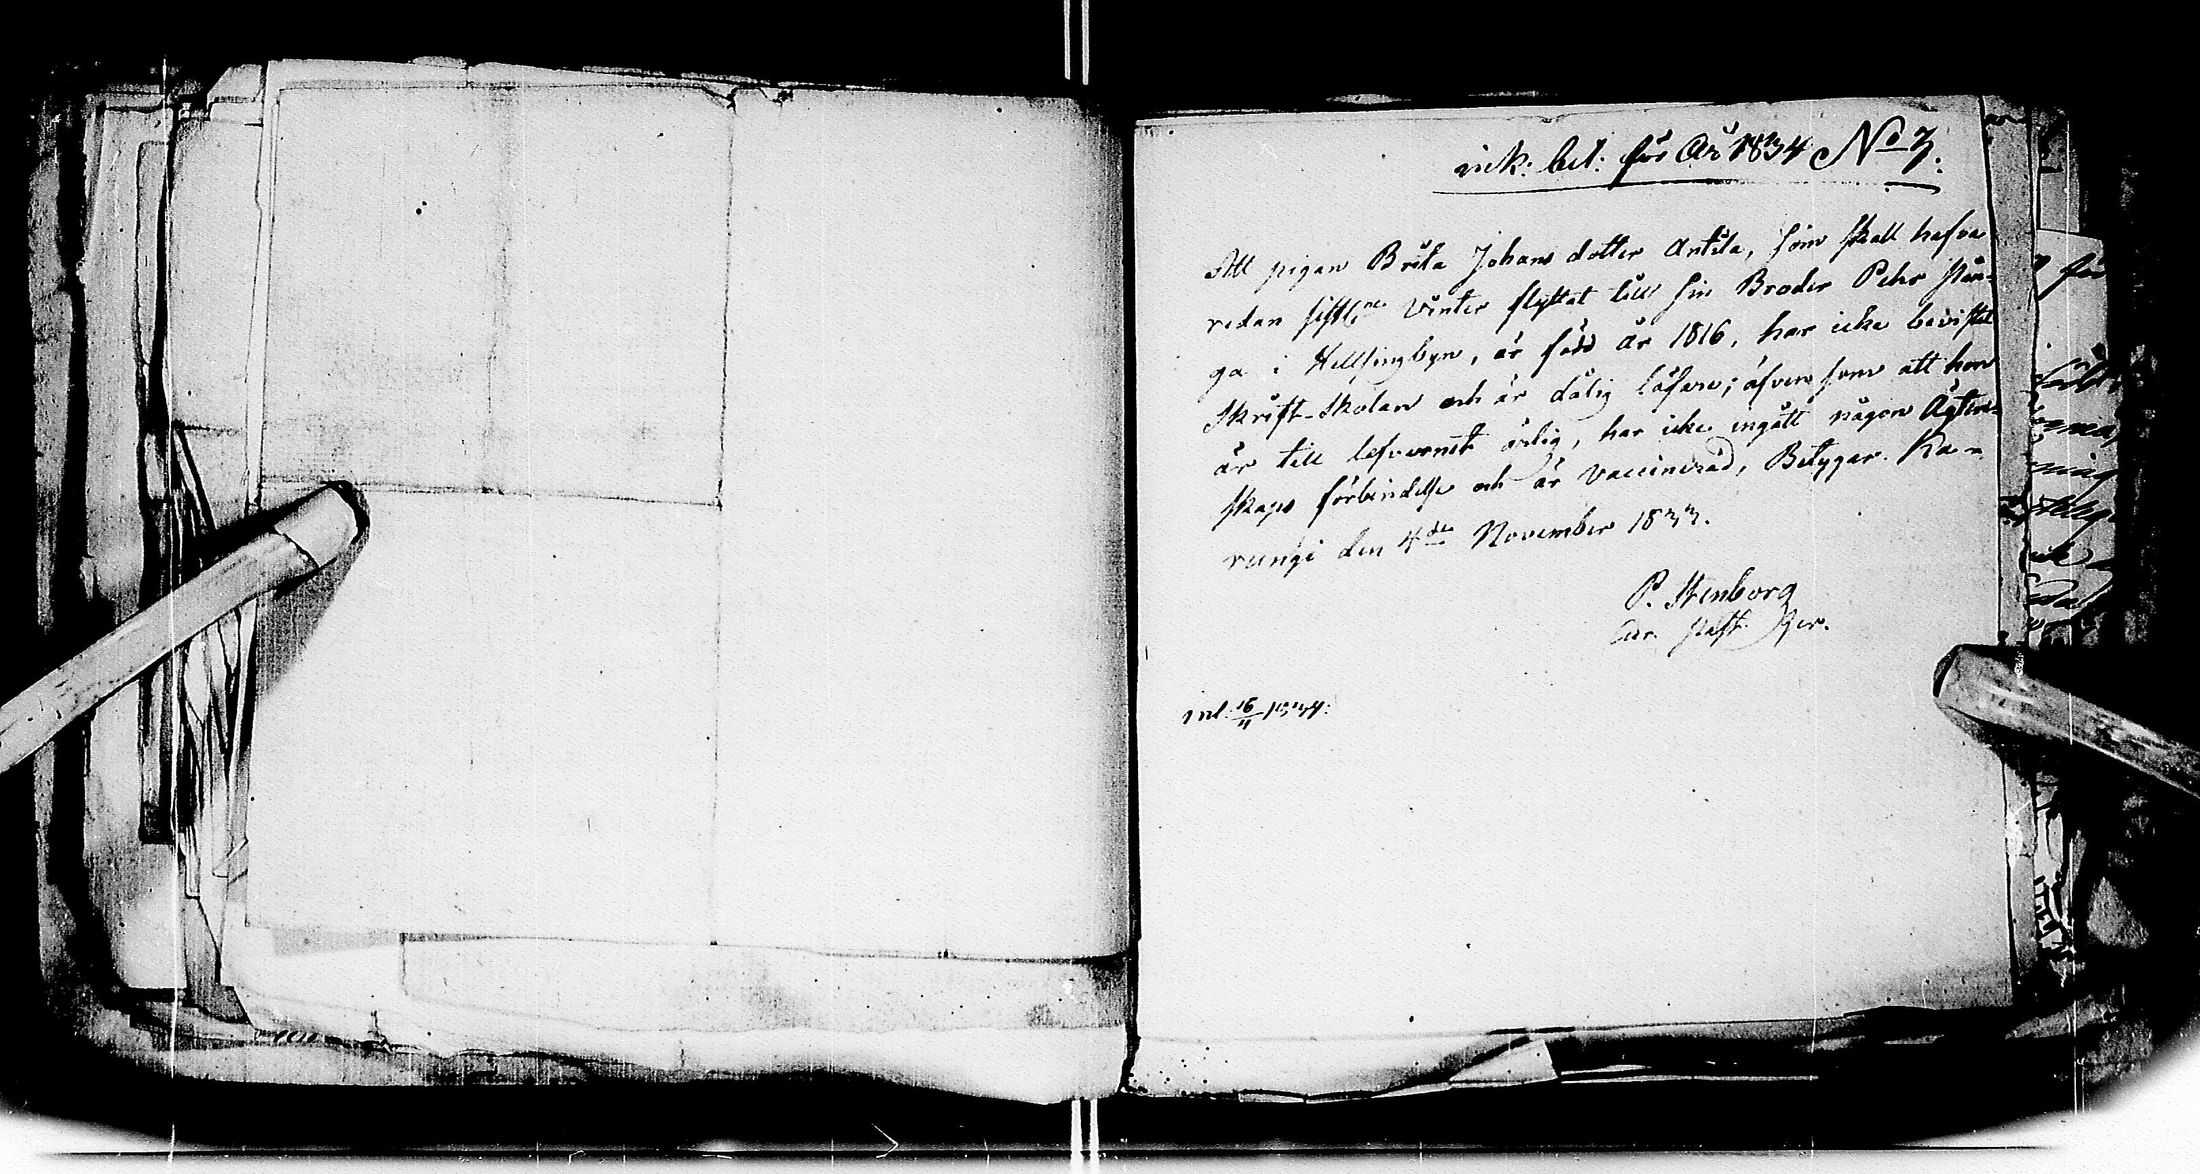 ink: bet: för År 1834 No 7.
Att pigan Brita Johans dotter Antila, som skall hafva
redan sistl:ne Winter flyttat till sin Broder Pehr
ga i Hellsingbyn, är född år 1816, har icke bevistat
Skrift-Skolan och är dålig läsare; äfven som att hon
är till lefvernet ärlig, har icke ingått någon Ägten-
skaps förbindelse och är vaccinerad, Betygar. Ka-
rungi den 4de November 1833.
P. Stenborg
inl: 16/11 1834: